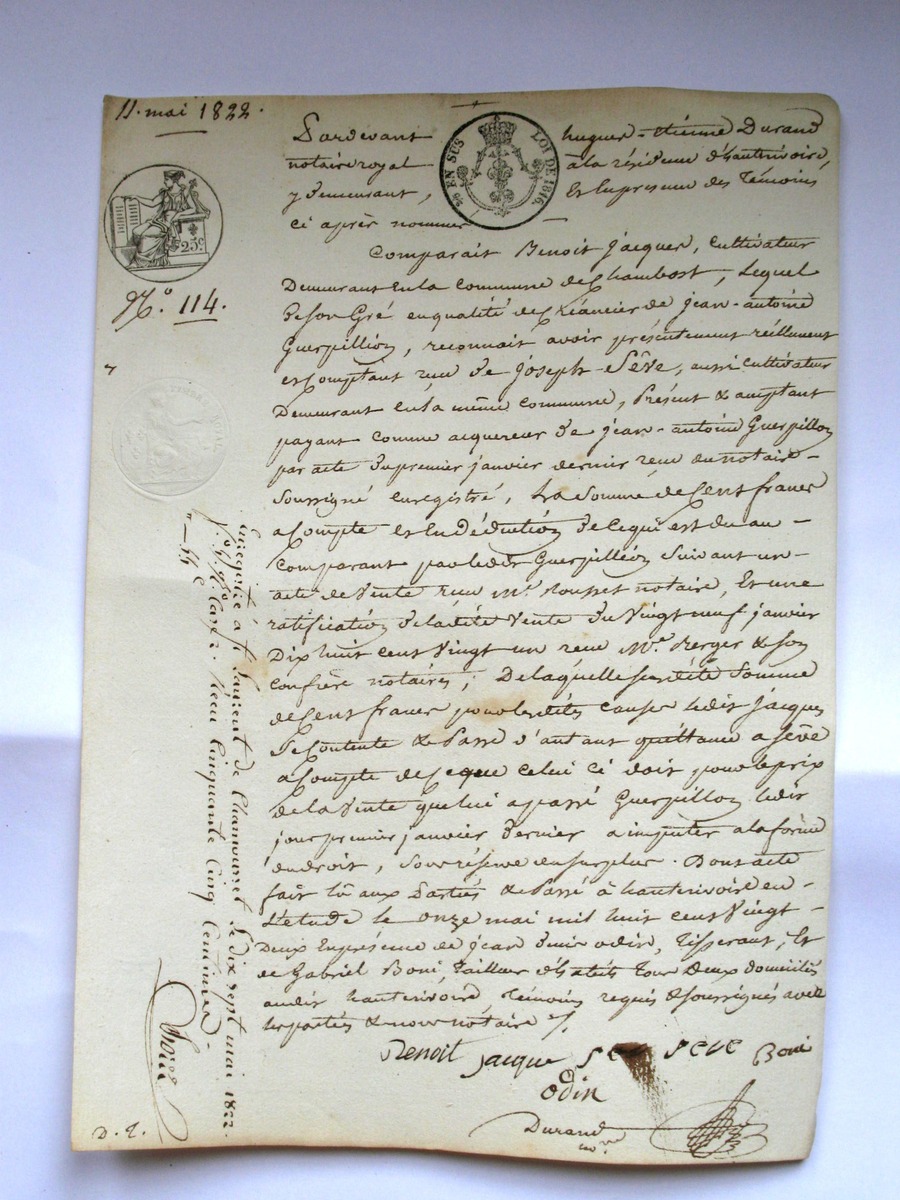 11. mai 1822.
Pardevant hugues-étienne Durand
notaire royal à la résidence d'hauterivoire,
y demeurant, Et en présence des témoins
ci après nommés
25c
EN SUS LOI DE 1816.
N.° 114.
Comparait Benoit jacques, Cultivateur
Demeurant en la commune de Chambost, Lequel
de son Gré en qualité de Créancier de jean-antoine
Guerpillion, reconnait avoir présentement réellement
et Comptant reçu de joseph-Sêve, aussi Cultivateur
Demeurant en la même commune, Présent & acceptant
payant comme acquereur de jean-antoine Guerpillon
par acte du premier janvier dernier reçu du notaire
soussigné enregistré, La Somme de Cent francs
acompte et en Déduction de ce qui est du au
Comparant par ledit Guerpillion Suivant un
acte de Vente reçu Me. Rousset notaire, Et une
ratification de ladite Vente du Vingt neuf janvier
Dix huit cent Vingt un reçue Me. Berger & son
confrère notaires; De laquelle susdite Somme
de Cent francs pour lesdites causes ledit jacques
Se Contente & Passe d'autant quittance a Sêve
acompte de ce que celui ci doit pour le prix
de la Vente que lui a passé Guerpillon ledit
jour premier janvier Dernier a imputer a la forme
du droit, Sous réserve du surplus. Dont acte
fait lû aux Parties & Passé à hauterivoire en
L'etude le onze mai mil huit cent Vingt
Deux En présence de jean Odin, Tisserant, Et
de Gabriel Boni, Tailleur d'habits Tous Deux domiciliés
audit hauterivoire Témoins requis & soussignés avec
les parties & nous notaire
Benoit jacque seve Boni
odin
Durand nre
Enregistré à St Laurent de Chamousset Le Dix sept mai 1822.
Reçu Cinquante Cinq Centimes
55c
D. 2.